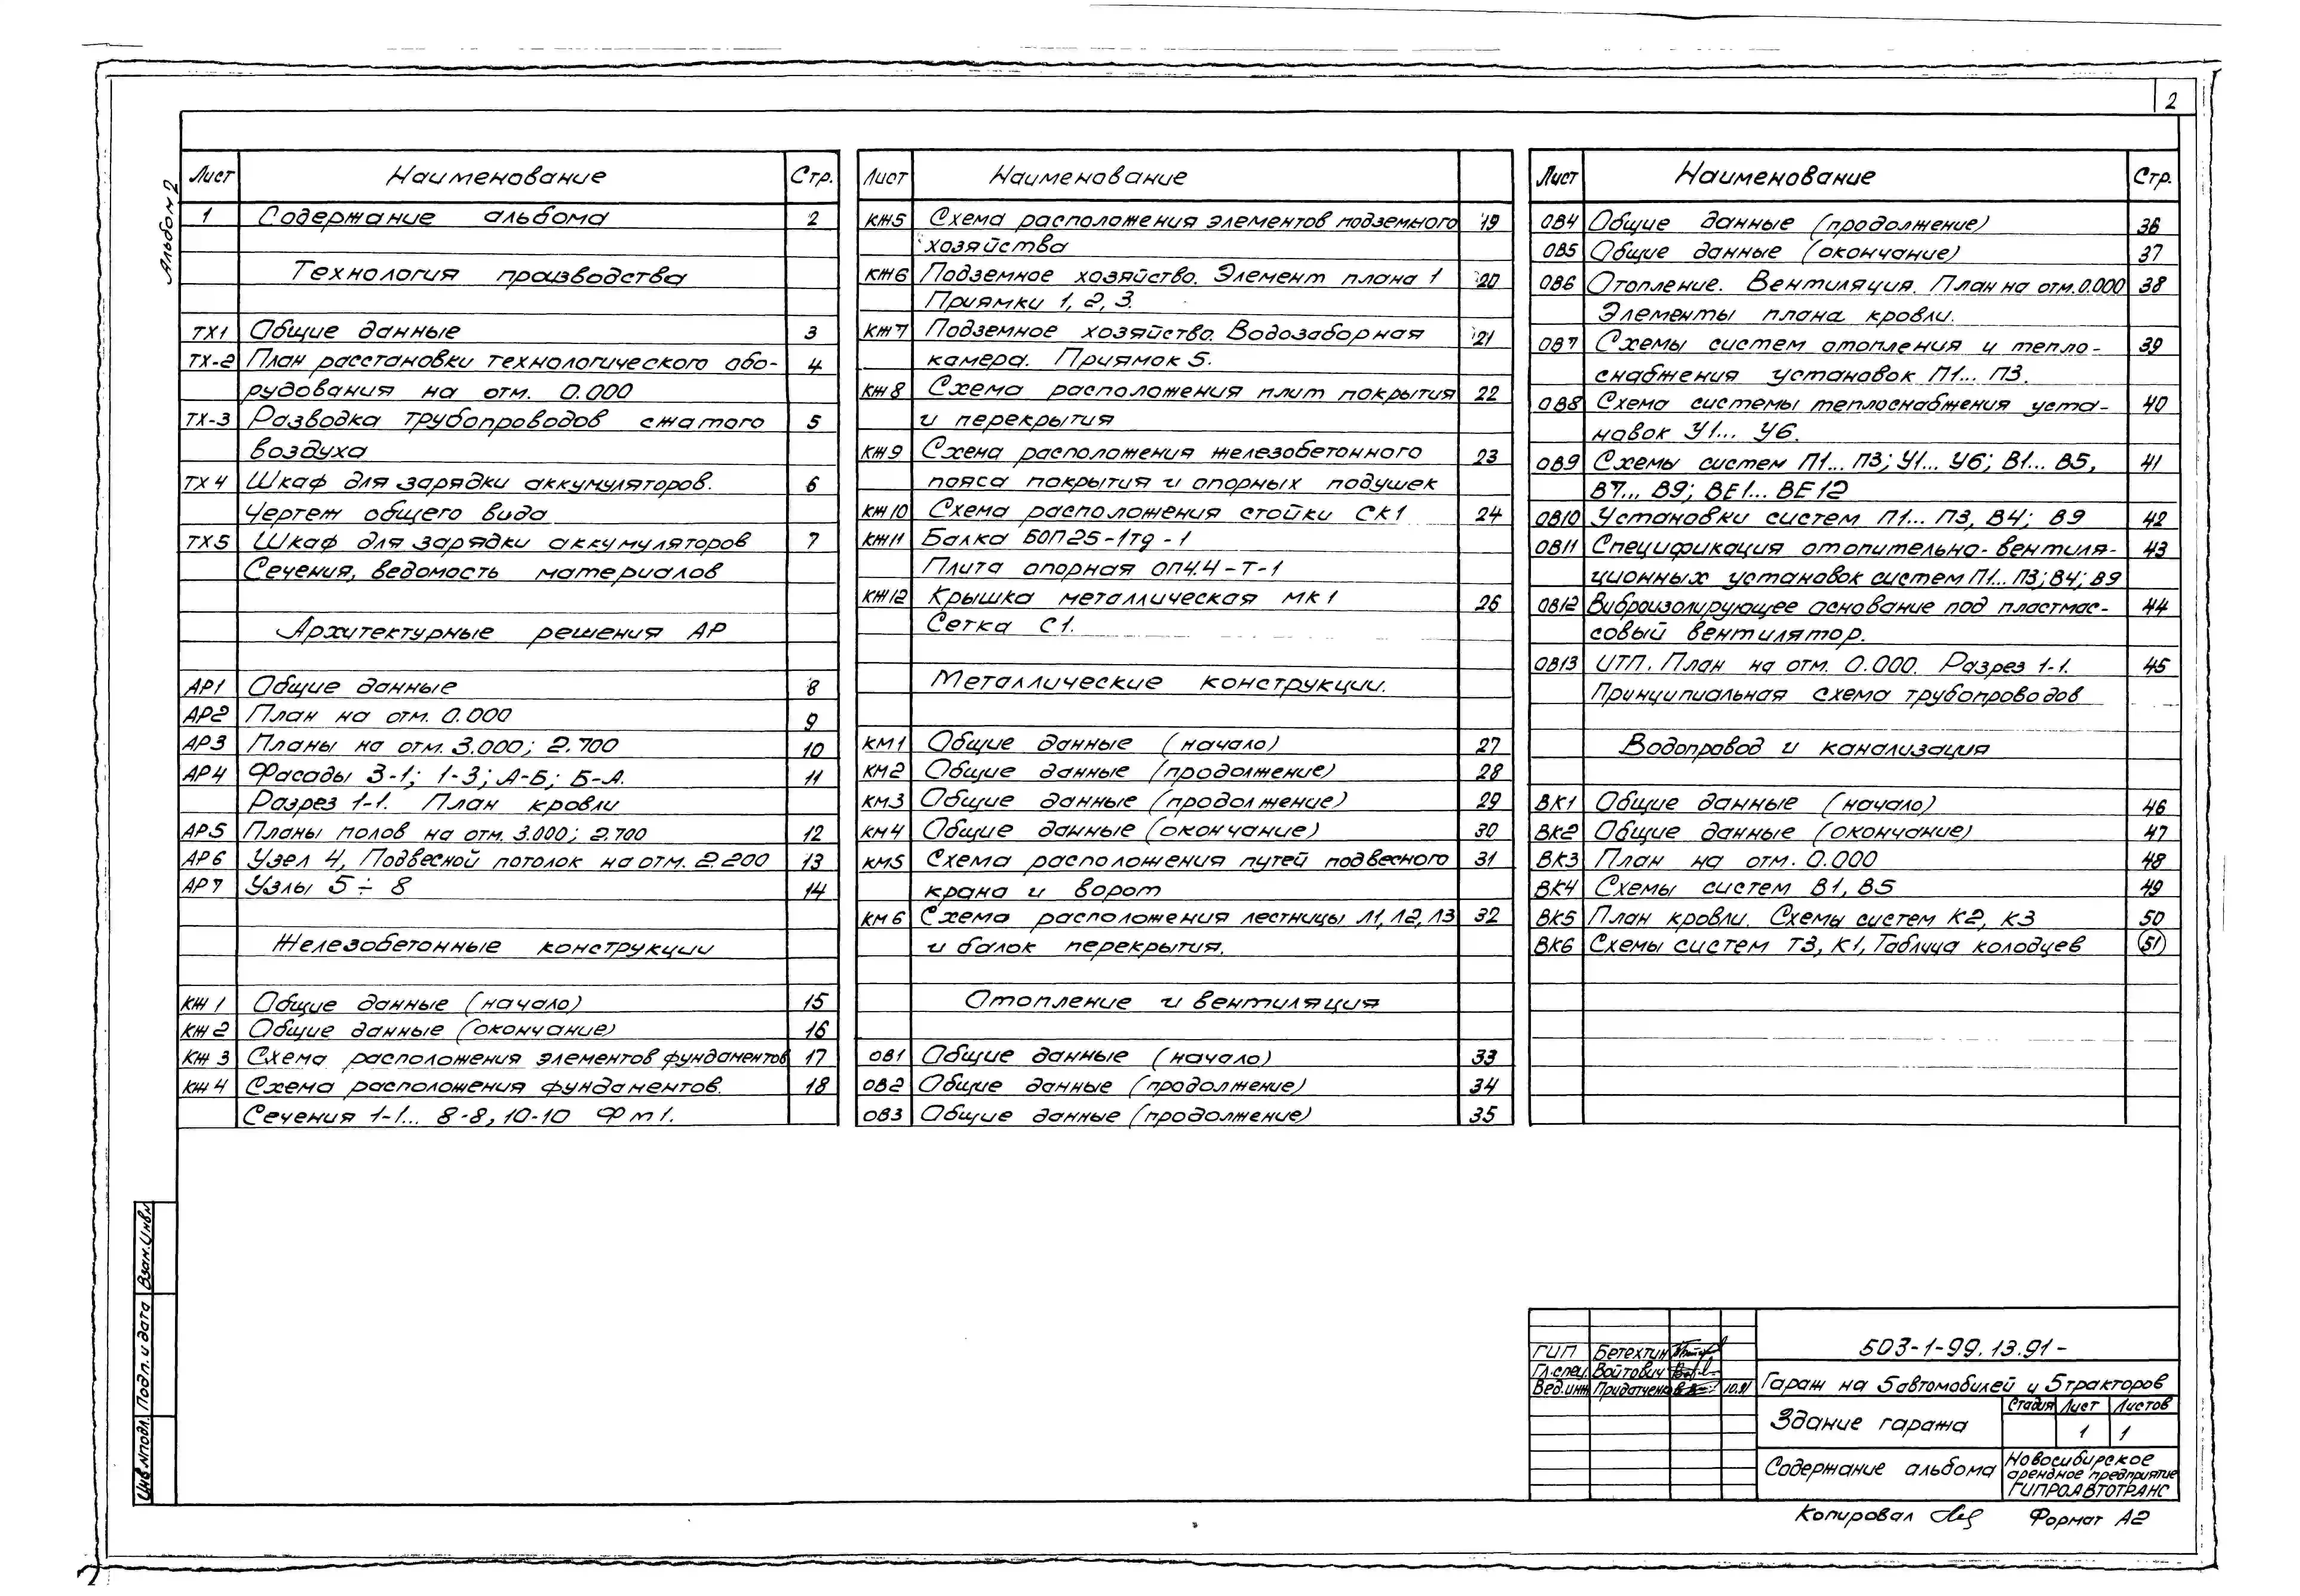 2
Альбом 2
Лист Наименование Стр.
1 Содержание альбома 2
Технология производства
ТХ1 Общие данные 3
ТХ-2 План расстановки технологического обо- 4
рудования на отм. 0.000
ТХ-3 Разводка трубопроводов сжатого 5
воздуха
ТХ4 Шкаф для зарядки аккумуляторов. 6
Чертеж общего вида
ТХ5 Шкаф для зарядки аккумуляторов 7
Сечения, ведомость материалов
Архитектурные решения АР
АР1 Общие данные 8
АР2 План на отм. 0.000 9
АР3 Планы на отм. 3.000; 2.700 10
АР4 Фасады 3-1; 1-3; А-Б; Б-А. 11
Разрез 1-1. План кровли
АР5 Планы полов на отм. 3.000; 2.700 12
АР6 Узел 4, Подвесной потолок на отм. 2.200 13
АР7 Узлы 5÷8 14
Железобетонные конструкции
КЖ1 Общие данные (начало) 15
КЖ2 Общие данные (окончание) 16
КЖ3 Схема расположения элементов фундаментов 17
КЖ4 Схема расположения фундаментов. 18
Сечения 1-1... 8-8, 10-10 Фm1.
Лист Наименование
КЖ5 Схема расположения элементов подземного 19
хозяйства
КЖ6 Подземное хозяйство. Элемент плана 1 20
Приямки 1, 2, 3.
КЖ7 Подземное хозяйство. Водозаборная 21
камера. Приямок 5.
КЖ8 Схема расположения плит покрытия 22
и перекрытия
КЖ9 Схема расположения железобетонного 23
пояса покрытия и опорных подушек
КЖ10 Схема расположения стойки СК1 24
КЖ11 Балка БОП25-1тд-1
Плита опорная ОП4.4-Т-1
КЖ12 Крышка металлическая МК1 26
Сетка С1.
Металлические конструкции.
КМ1 Общие данные (начало) 27
КМ2 Общие данные (продолжение) 28
КМ3 Общие данные (продолжение) 29
КМ4 Общие данные (окончание) 30
КМ5 Схема расположения путей подвесного 31
крана и ворот
КМ6 Схема расположения лестницы Л1, Л2, Л3 32
и балок перекрытия.
Отопление и вентиляция
ОВ1 Общие данные (начало) 33
ОВ2 Общие данные (продолжение) 34
ОВ3 Общие данные (продолжение) 35
Лист Наименование Стр.
ОВ4 Общие данные (продолжение) 36
ОВ5 Общие данные (окончание) 37
ОВ6 Отопление. Вентиляция. План на отм. 0.000 38
Элементы плана кровли.
ОВ7 Схемы систем отопления и тепло- 39
снабжения установок П1... П3.
ОВ8 Схема системы теплоснабжения уста- 40
новок У1... У6.
ОВ9 Схемы систем П1... П3; У1... У6; В1... В5, 41
В7... В9; ВЕ1... ВЕ12
ОВ10 Установки систем П1... П3, В4; В9 42
ОВ11 Спецификация отопительно-вентиля- 43
ционных установок систем П1... П3; В4; В9
ОВ12 Виброизолирующее основание под пластмас- 44
совый вентилятор.
ОВ13 ИТП. План на отм. 0.000. Разрез 1-1. 45
Принципиальная схема трубопроводов
Водопровод и канализация
ВК1 Общие данные (начало) 46
ВК2 Общие данные (окончание) 47
ВК3 План на отм. 0.000 48
ВК4 Схемы систем В1, В5 49
ВК5 План кровли. Схемы систем К2, К3 50
ВК6 Схемы систем Т3, К1, Таблица колодцев 51
Взам. Инв№
Подп. и дата
Инв.№подл.
ГИП Бетехтин
Гл.спец. Войтович
Вед.инж. Придатченко 10.91
503-1-99.13.91-
Гараж на 5 автомобилей и 5 тракторов
Здание гаража
Стадия Лист Листов
1 1
Содержание альбома
Новосибирское
арендное предприятие
ГИПРОАВТОТРАНС
Копировал Формат А2